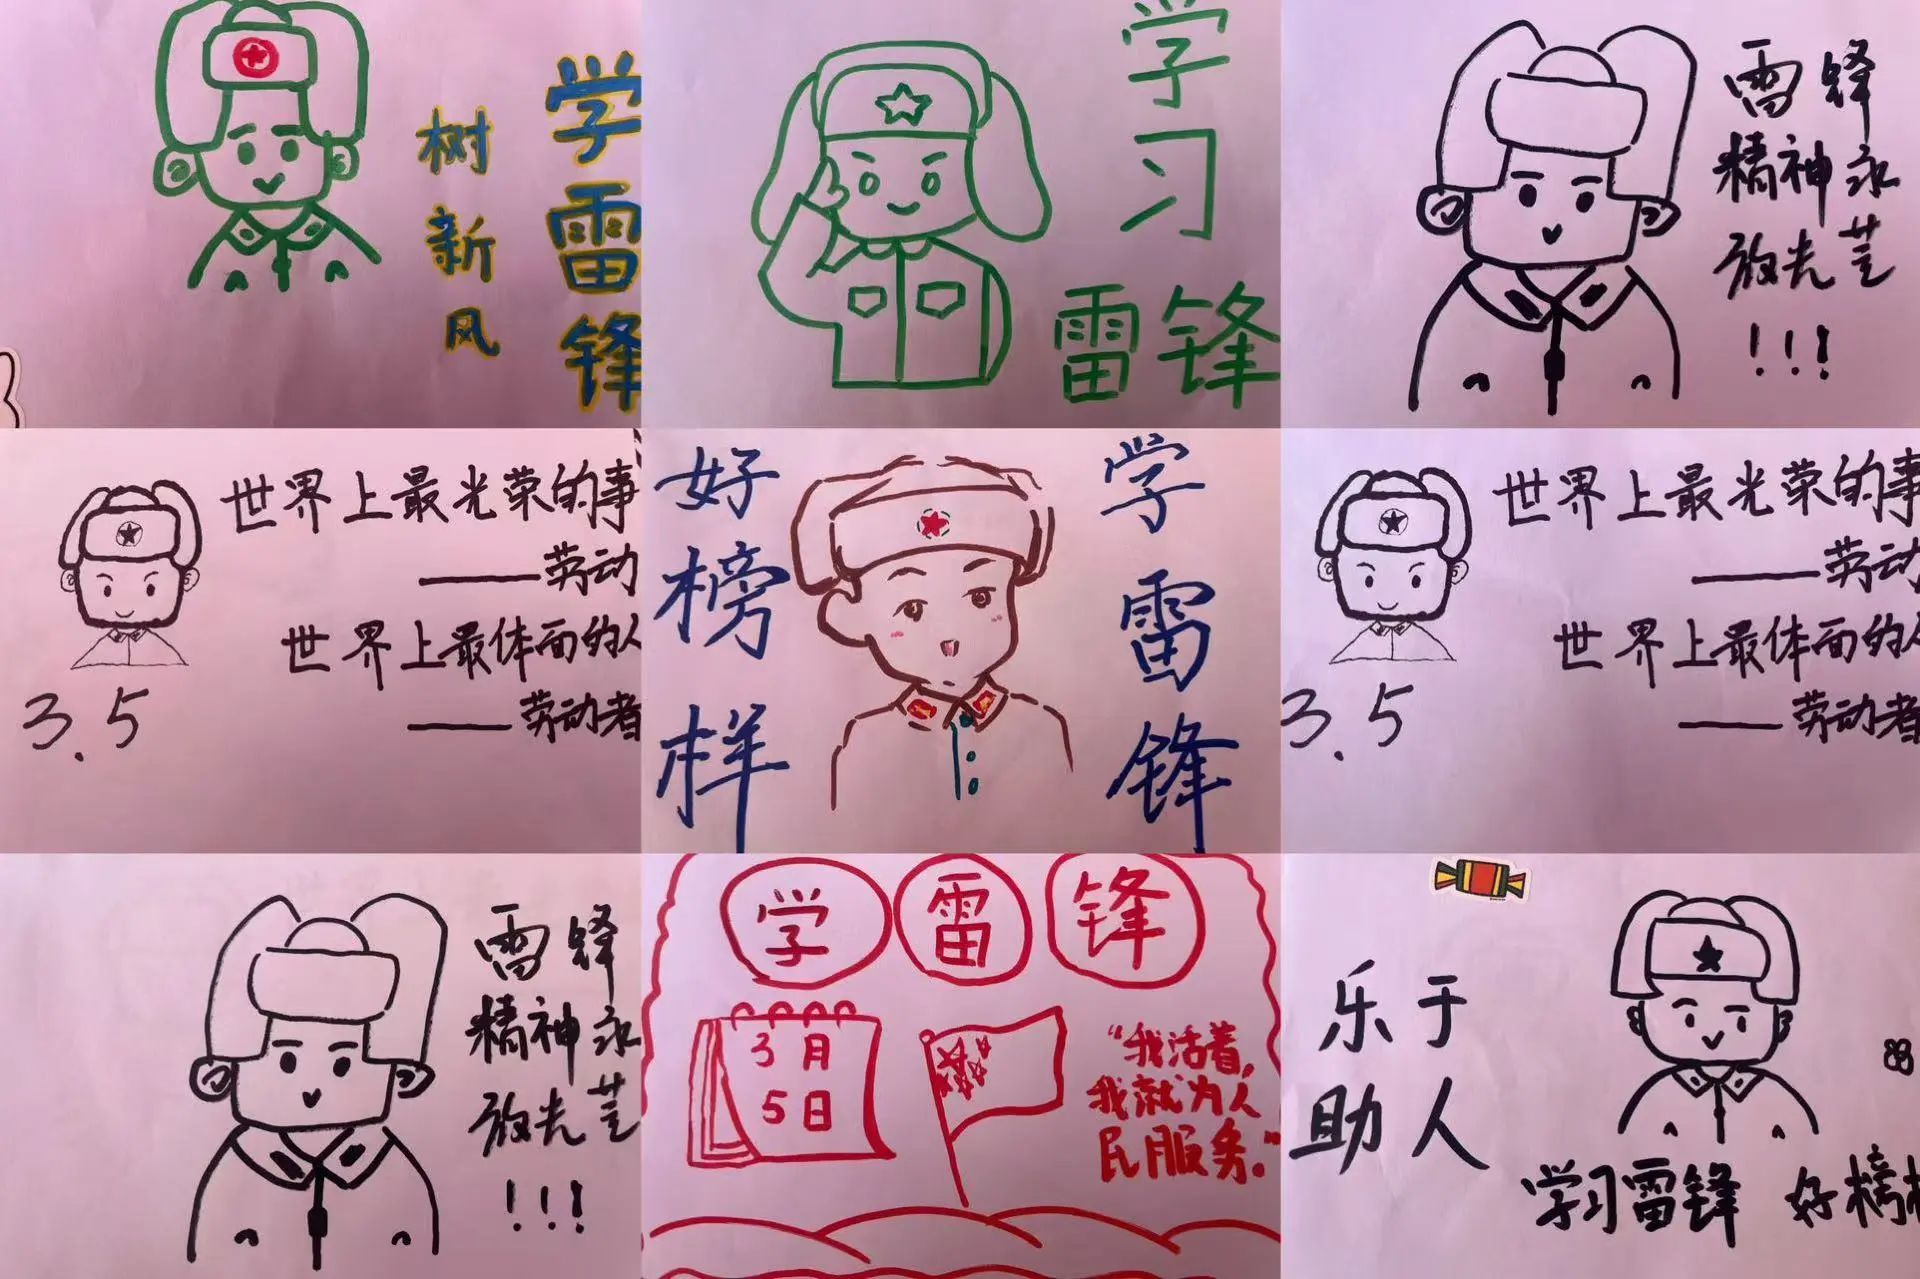 学雷锋
树新风
学习
雷锋
雷锋
精神永
放光芒
!!!
世界上最光荣的事
——劳动
世界上最体面的人
——劳动者
3.5
学雷锋
好榜样
世界上最光荣的事
——劳动
世界上最体面的人
——劳动者
3.5
雷锋
精神永
放光芒
!!!
学雷锋
3月
5日
“我活着，
我就为人
民服务。”
乐于
助人
学习雷锋 好榜样